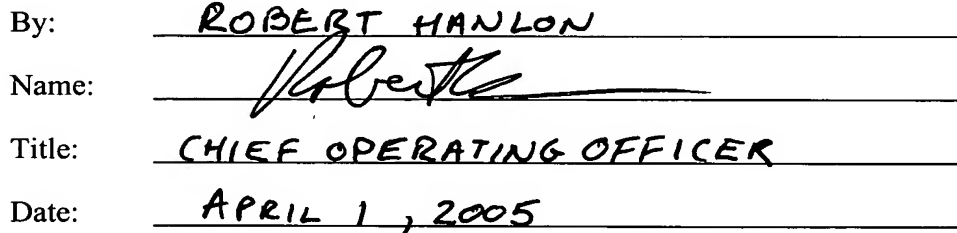 By: ROBERT HANLON
Name:
Title: CHIEF OPERATING OFFICER
Date: APRIL 1, 2005